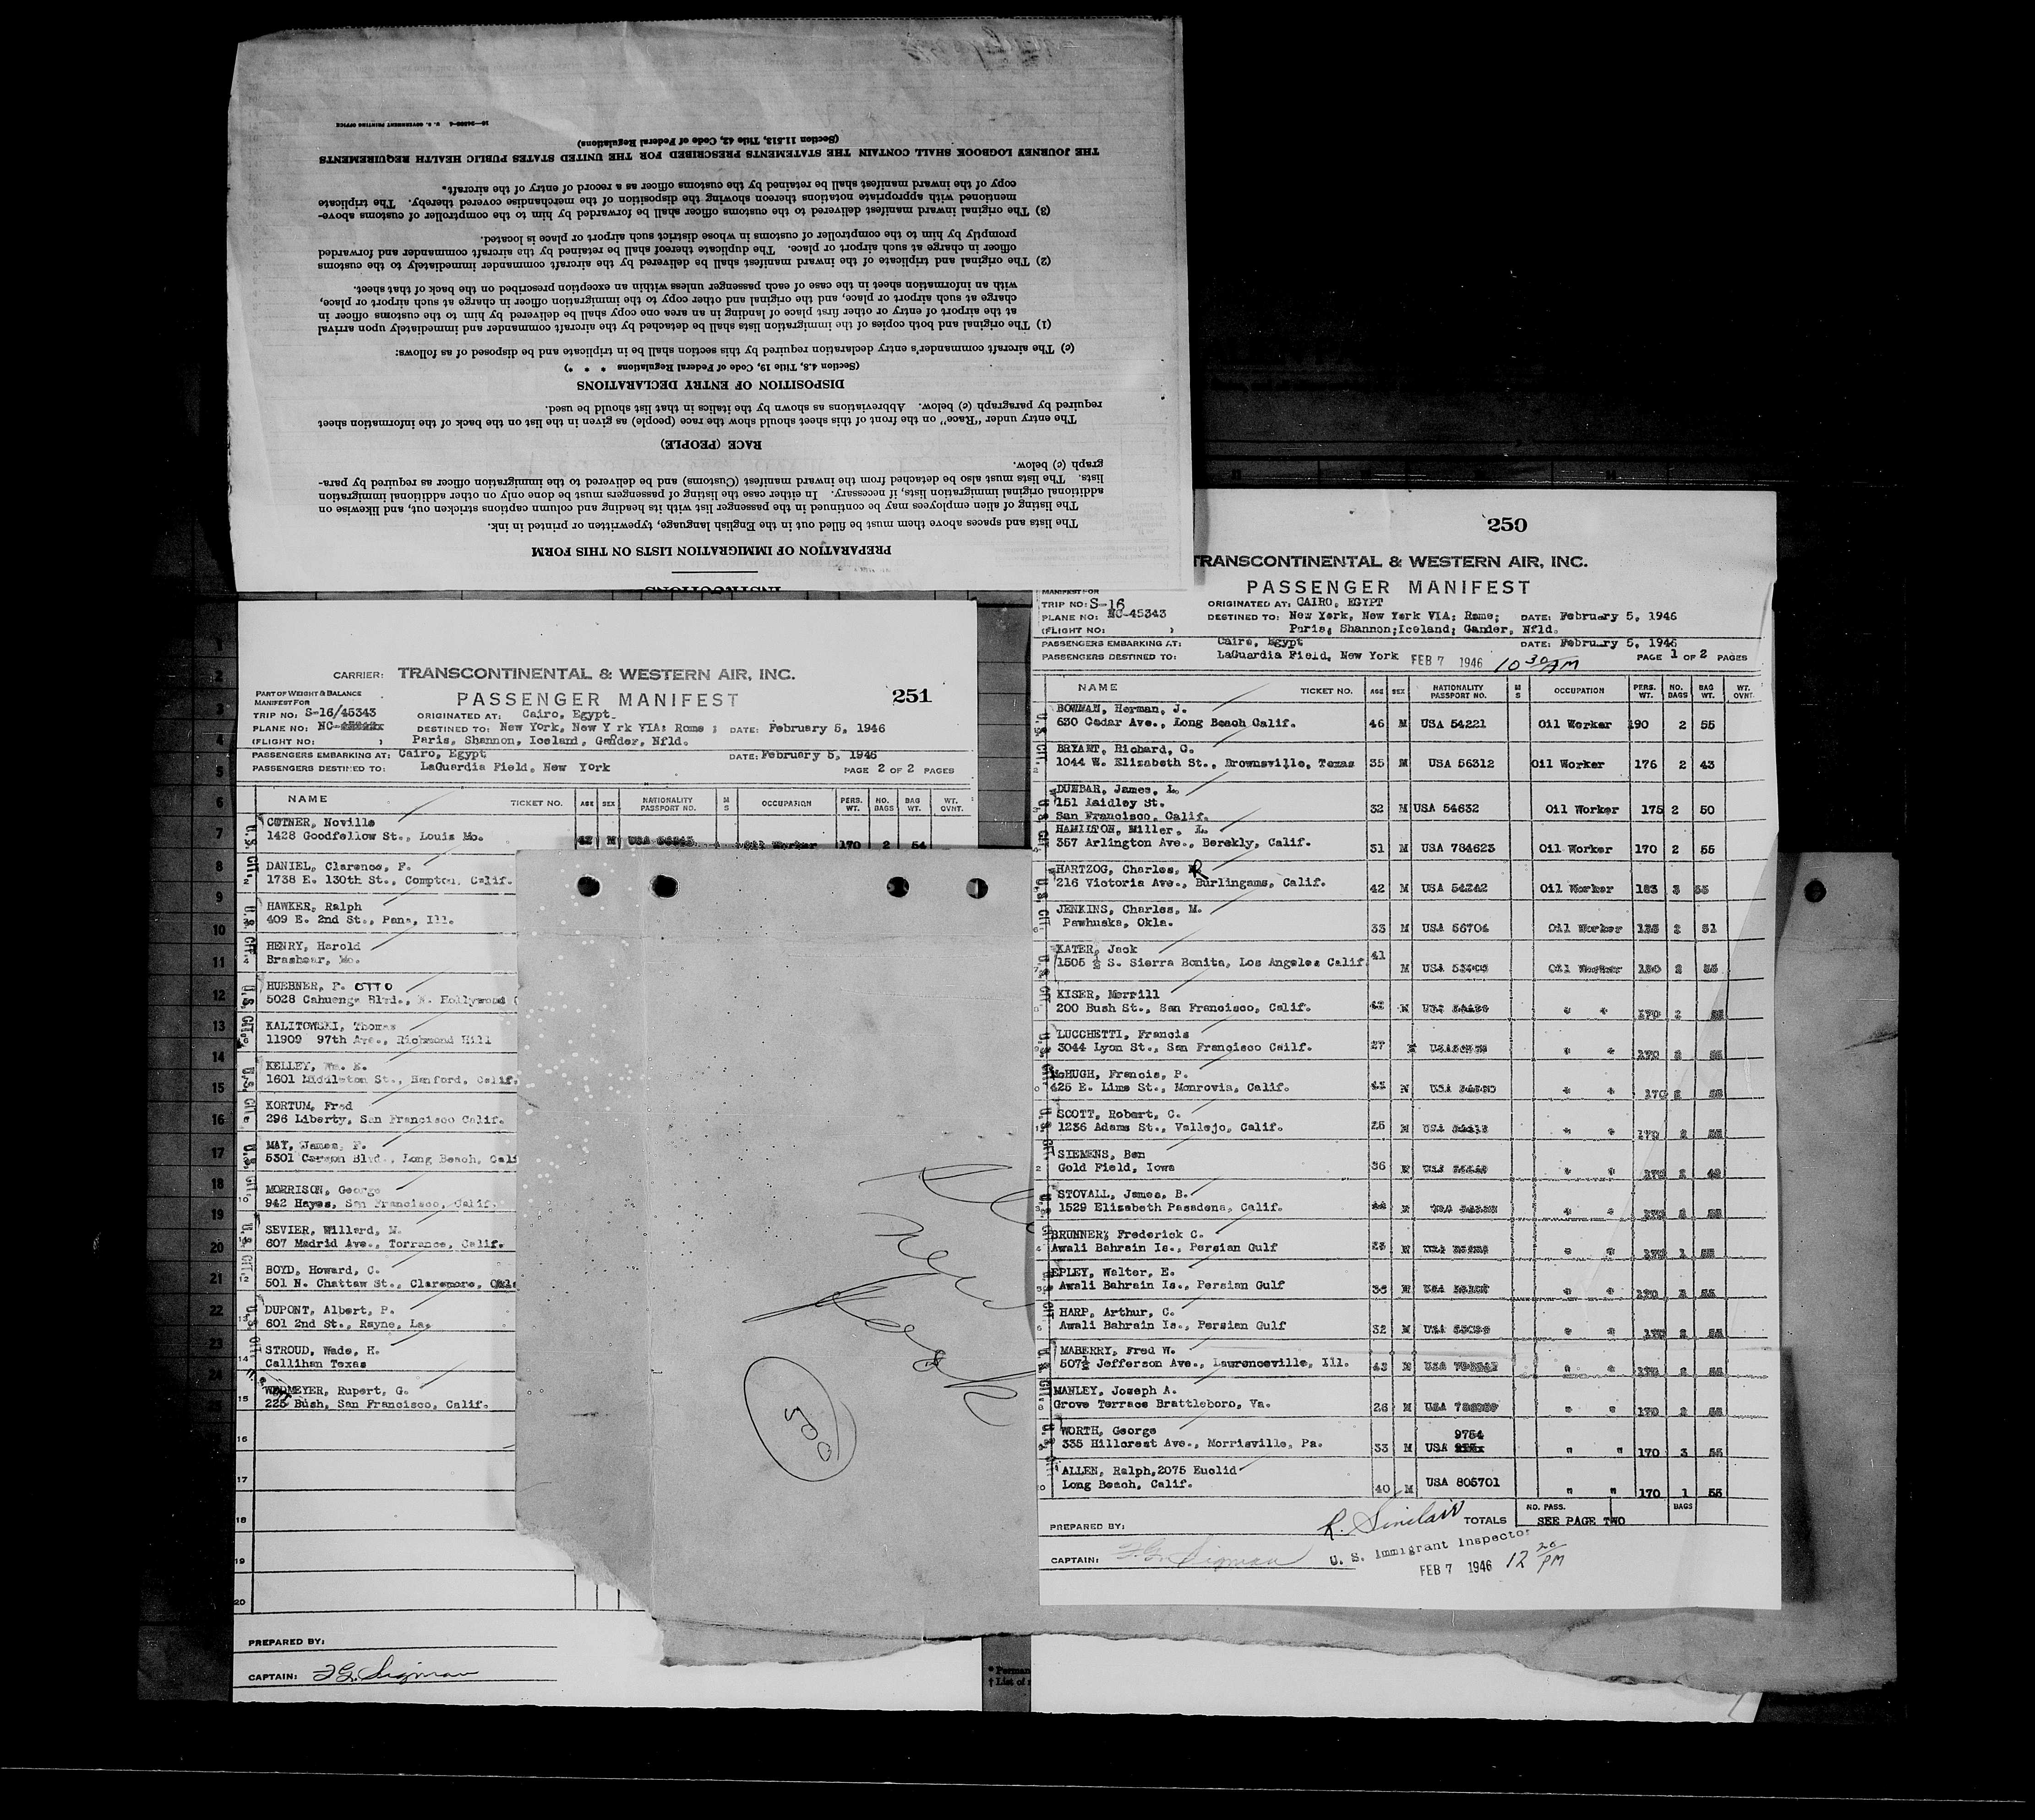 PREPARATION OF IMMIGRATION LISTS ON THIS FORM
The lists and spaces above them must be filled out in the English language, typewritten or printed in ink.
The listing of alien employees may be continued in the passenger list with its heading and column captions stricken out, and likewise on
additional original immigration lists, if necessary. In either case the listing of passengers must be done only on other additional immigration
lists. The lists must also be detached from the inward manifest (Customs) and be delivered to the immigration officer as required by para-
graph (c) below.
RACE (PEOPLE)
The entry under "Race" on the front of this sheet should show the race (people) as given in the list on the back of the information sheet
required by paragraph (c) below. Abbreviations as shown by the italics in that list should be used.
DISPOSITION OF ENTRY DECLARATIONS
(Section 4.8, Title 19, Code of Federal Regulations * * *)
(c) The aircraft commander's entry declaration required by this section shall be in triplicate and be disposed of as follows:
(1) The original and both copies of the immigration lists shall be detached by the aircraft commander and immediately upon arrival
at the airport of entry or other first place of landing in an area one copy shall be delivered by him to the customs officer in
charge at such airport or place, and the original and other copy to the immigration officer in charge at such airport or place,
with an information sheet in the case of each passenger unless within an exception prescribed on the back of that sheet.
(2) The original and triplicate of the inward manifest shall be delivered by the aircraft commander immediately to the customs
officer in charge at such airport or place. The duplicate thereof shall be retained by the aircraft commander and forwarded
promptly by him to the comptroller of customs in whose district such airport or place is located.
(3) The original inward manifest delivered to the customs officer shall be forwarded by him to the comptroller of customs above-
mentioned with appropriate notations thereon showing the disposition of the merchandise covered thereby. The triplicate
copy of the inward manifest shall be retained by the customs officer as a record of entry of the aircraft.
THE JOURNEY LOGBOOK SHALL CONTAIN THE STATEMENTS PRESCRIBED FOR THE UNITED STATES PUBLIC HEALTH REQUIREMENTS
(Section 11.513, Title 42, Code of Federal Regulations)
U. S. GOVERNMENT PRINTING OFFICE
CARRIER: TRANSCONTINENTAL & WESTERN AIR, INC.
PASSENGER MANIFEST 251
PART OF WEIGHT & BALANCE
MANIFEST FOR
TRIP NO: S-16/45343 ORIGINATED AT: Cairo, Egypt
PLANE NO: NC- DESTINED TO: New York, New Y rk VIA: Rome ; DATE: February 5, 1946
(FLIGHT NO: ) Paris, Shannon, Iceland, Gander, Nfld.
PASSENGERS EMBARKING AT: Cairo, Egypt DATE: February 5, 1946
PASSENGERS DESTINED TO: LaGuardia Field, New York PAGE 2 OF 2 PAGES
NAME TICKET NO. AGE SEX NATIONALITY PASSPORT NO. M S OCCUPATION PERS. WT. NO. BAGS BAG WT. WT. OVNT.
COTNER, Noville
1428 Goodfellow St., Louis Mo. 42 M USA Oil Worker 170 2 54
DANIEL, Clarence, F.
1738 E. 130th St., Compton, Calif.
HAWKER, Ralph
409 E. 2nd St., Pana, Ill.
HENRY, Harold
Brashear, Mo.
HUEBNER, F. OTTO
5028 Cahuenga Blvd., N. Hollywood
KALITOWSKI, Thomas
11909 97th Ave., Richmond Hill
KELLEY, Wm. E.
1601 Middleton St., Hanford, Calif.
KORTUM, Fred
296 Liberty, San Francisco Calif.
MAY, James, F.
5301 Carson Blvd., Long Beach, Cali
MORRISON, George
942 Hayes, San Francisco, Calif.
SEVIER, Willard, M.
607 Madrid Ave., Torrance, Calif.
BOYD, Howard, C.
501 N. Chattaw St., Claremore, Okla
DUPONT, Albert, P.
601 2nd St., Rayne, La.
STROUD, Wade, H.
Callihan Texas
WEDMEYER, Rupert, G.
225 Bush, San Francisco, Calif.
PREPARED BY:
CAPTAIN: F.G. Sigman
new
book
250
TRANSCONTINENTAL & WESTERN AIR, INC.
PASSENGER MANIFEST
MANIFEST FOR
TRIP NO: S-16 ORIGINATED AT: CAIRO, EGYPT
PLANE NO: NC-45343 DESTINED TO: New York, New York VIA; Rome; DATE: February 5, 1946
(FLIGHT NO: ) Paris, Shannon;Iceland; Gander, Nfld.
PASSENGERS EMBARKING AT: Cairo, Egypt DATE: February 5, 1946
PASSENGERS DESTINED TO: LaGuardia Field, New York FEB 7 1946 10 30 AM PAGE 1 OF 2 PAGES
NAME TICKET NO. AGE SEX NATIONALITY PASSPORT NO. M S OCCUPATION PERS. WT. NO. BAGS BAG WT. WT. OVNT.
BOWMAN, Herman, J.
630 Cedar Ave., Long Beach Calif. 46 M USA 54221 Oil Worker 190 2 55
BRYANT, Richard, C.
1044 W. Elizabeth St., Brownsville, Texas 35 M USA 56312 Oil Worker 176 2 43
DUNBAR, James, L.
151 Laidley St. 32 M USA 54632 Oil Worker 175 2 50
San Francisco, Calif.
HAMILTON, Miller, L.
357 Arlington Ave., Berekly, Calif. 31 M USA 784623 Oil Worker 170 2 55
HARTZOG, Charles, R
216 Victoria Ave., Burlingame, Calif. 42 M USA 54242 Oil Worker 183 3 55
JENKINS, Charles, M.
Pawhuska, Okla. 33 M USA 56704 Oil Worker 135 2 51
KATER, Jack 41
1505 ½ S. Sierra Bonita, Los Angeles Calif. M USA Oil Worker 150 2 55
KISER, Merrill
200 Bush St., San Francisco, Calif. 42 M USA " " 170 2 55
LUCCHETTI, Francis
3044 Lyon St., San Francisco Cailf. 27 M USA " " 170 2 55
McHUGH, Francis, P.
425 E. Lime St., Monrovia, Calif. M USA " " 170 2 55
SCOTT, Robert, C.
1236 Adams St., Vallejo, Calif. 25 M USA " " 170 2 55
SIEMENS, Ben
Gold Field, Iowa 36 M USA " " 170 2 49
STOVALL, James, B.
1529 Elizabeth Pasadena, Calif. M USA " " 170 2 55
BRUNNER; Frederick C.
Awali Bahrain Is., Persian Gulf M USA " " 170 1 55
EPLEY, Walter, E.
Awali Bahrain Is., Persian Gulf M USA " " 170 2 55
HARP, Arthur, C.
Awali Bahrain Is., Persian Gulf 32 M USA " " 170 2 55
MABERRY, Fred W.
507½ Jefferson Ave., Lawrenceville, Ill. 43 M USA " " 170 2 55
MANLEY, Joseph A.
Grove Terrace Brattleboro, Va. 26 M USA " " 170 2 55
WORTH, George 9754
335 Hillcrest Ave., Morrisville, Pa. 33 M USA " " 170 3 55
ALLEN, Ralph,2075 Euclid
Long Beach, Calif. 40 M USA 805701 " " 170 1 55
NO. PASS. BAGS
PREPARED BY: R. Sinclair TOTALS SEE PAGE TWO
U. S. Immigrant Inspector
CAPTAIN: F.G. Sigman
FEB 7 1946 12 20 PM
* Perman
† List of